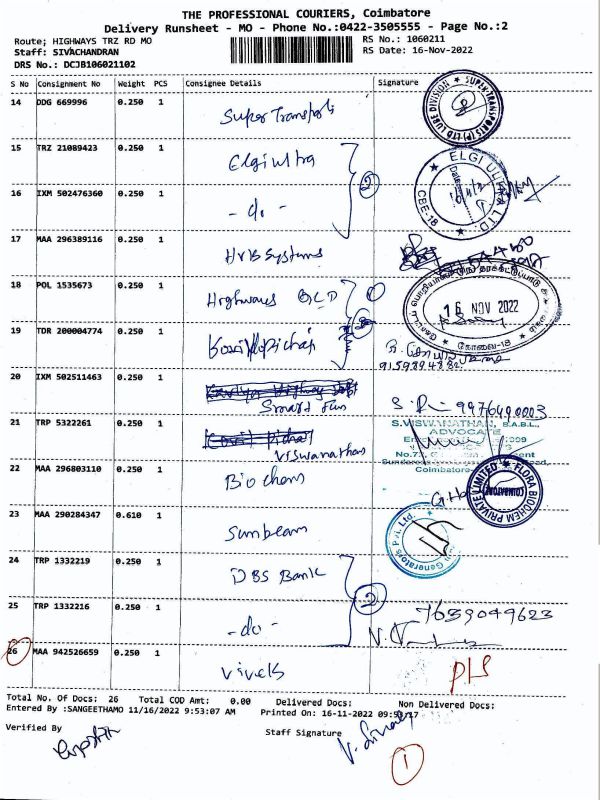 THE PROFESSIONAL COURIERS, Coimbatore
Delivery Runsheet - MO - Phone No.:0422-3505555 - Page No.:2
Route; HIGHWAYS TRZ RD MO
RS No.: 1060211
Staff: SIVACHANDRAN
RS Date: 16-Nov-2022
DRS No.: DCJB106021102
S No Consignment No Weight PCS Consignee Details Signature
14 DDG 669996 0.250 1 Super Transports
SUPER-TRANSPORTS (P) LTD LUBE DIVISION
15 TRZ 21089423 0.250 1 Elgi ultra
ELGI ULTRA LTD. CBE-18
16 IXM 502476360 0.250 1 - do -
2
17 MAA 296389116 0.250 1 HVB Systems
18 POL 1535673 0.250 1 Highways
1
16 NOV 2022
கோவை-18
19 TDR 200004774 0.250 1
20 IXM 502511463 0.250 1
Smart Fun
9976490003
21 TRP 5322261 0.250 1
Viswanathan
S.VISWANATHAN, B.A.BL.,
ADVOCATE
Coimbatore
22 MAA 296803110 0.250 1 Bio chem
FLORA BIOCHEM PRIVATE LIMITED
COIMBATORE
23 MAA 290284347 0.610 1 Sunbeam
Generators Pvt. Ltd.
24 TRP 1332219 0.250 1 DBS Bank
2
25 TRP 1332216 0.250 1 - do -
7639049623
26 MAA 942526659 0.250 1 Viveks
Total No. Of Docs: 26 Total COD Amt: 0.00 Delivered Docs: Non Delivered Docs:
Entered By :SANGEETHAMO 11/16/2022 9:53:07 AM Printed On: 16-11-2022
Verified By
Staff Signature
1